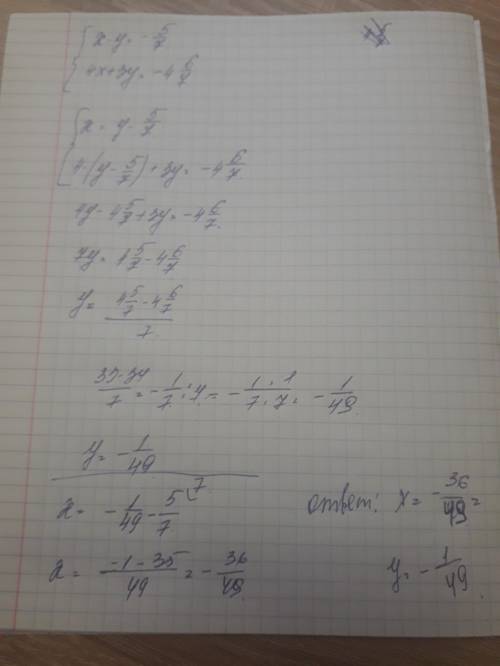 x - y = - 5/7
4x + 3y = -4 6/7
x = y - 5/7
4·(y - 5/7) + 3y = -4 6/7
4y - 4 5/7 + 3y = -4 6/7
7y = 4 5/7 - 4 6/7
y = (4 5/7 - 4 6/7)/7
(33-34)/7 = - 1/7 : 7 = - 1/7 · 1/7 = - 1/49
y = - 1/49
x = - 1/49 - 5/7 \7
x = (-1 - 35)/49 = - 36/49
ответ: x = - 36/49 =
y = - 1/49